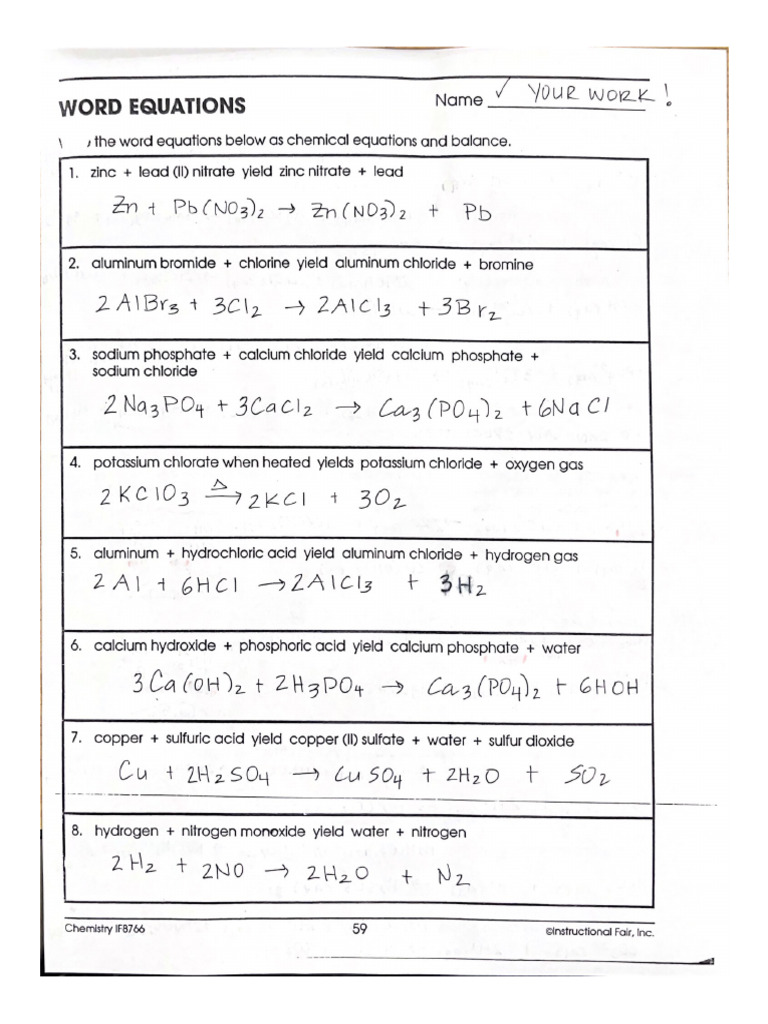 WORD EQUATIONS
Name ✓ YOUR WORK!
the word equations below as chemical equations and balance.
1. zinc + lead (II) nitrate yield zinc nitrate + lead
Zn + Pb(NO3)2 → Zn(NO3)2 + Pb
2. aluminum bromide + chlorine yield aluminum chloride + bromine
2 AlBr3 + 3Cl2 → 2AlCl3 + 3Br2
3. sodium phosphate + calcium chloride yield calcium phosphate +
sodium chloride
2 Na3PO4 + 3CaCl2 → Ca3(PO4)2 + 6NaCl
4. potassium chlorate when heated yields potassium chloride + oxygen gas
Δ
2 KClO3 → 2KCl + 3O2
5. aluminum + hydrochloric acid yield aluminum chloride + hydrogen gas
2 Al + 6HCl → 2AlCl3 + 3H2
6. calcium hydroxide + phosphoric acid yield calcium phosphate + water
3Ca(OH)2 + 2H3PO4 → Ca3(PO4)2 + 6HOH
7. copper + sulfuric acid yield copper (II) sulfate + water + sulfur dioxide
Cu + 2H2SO4 → CuSO4 + 2H2O + SO2
8. hydrogen + nitrogen monoxide yield water + nitrogen
2H2 + 2NO → 2H2O + N2
Chemistry IF8766 59 ©Instructional Fair, Inc.